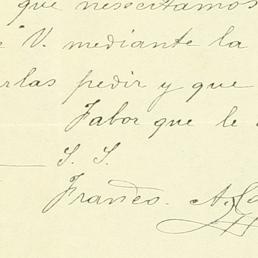 que nesecitamos
V. mediante la
arlas pedir y que
Fabor que le
S. S.
Francō. A.